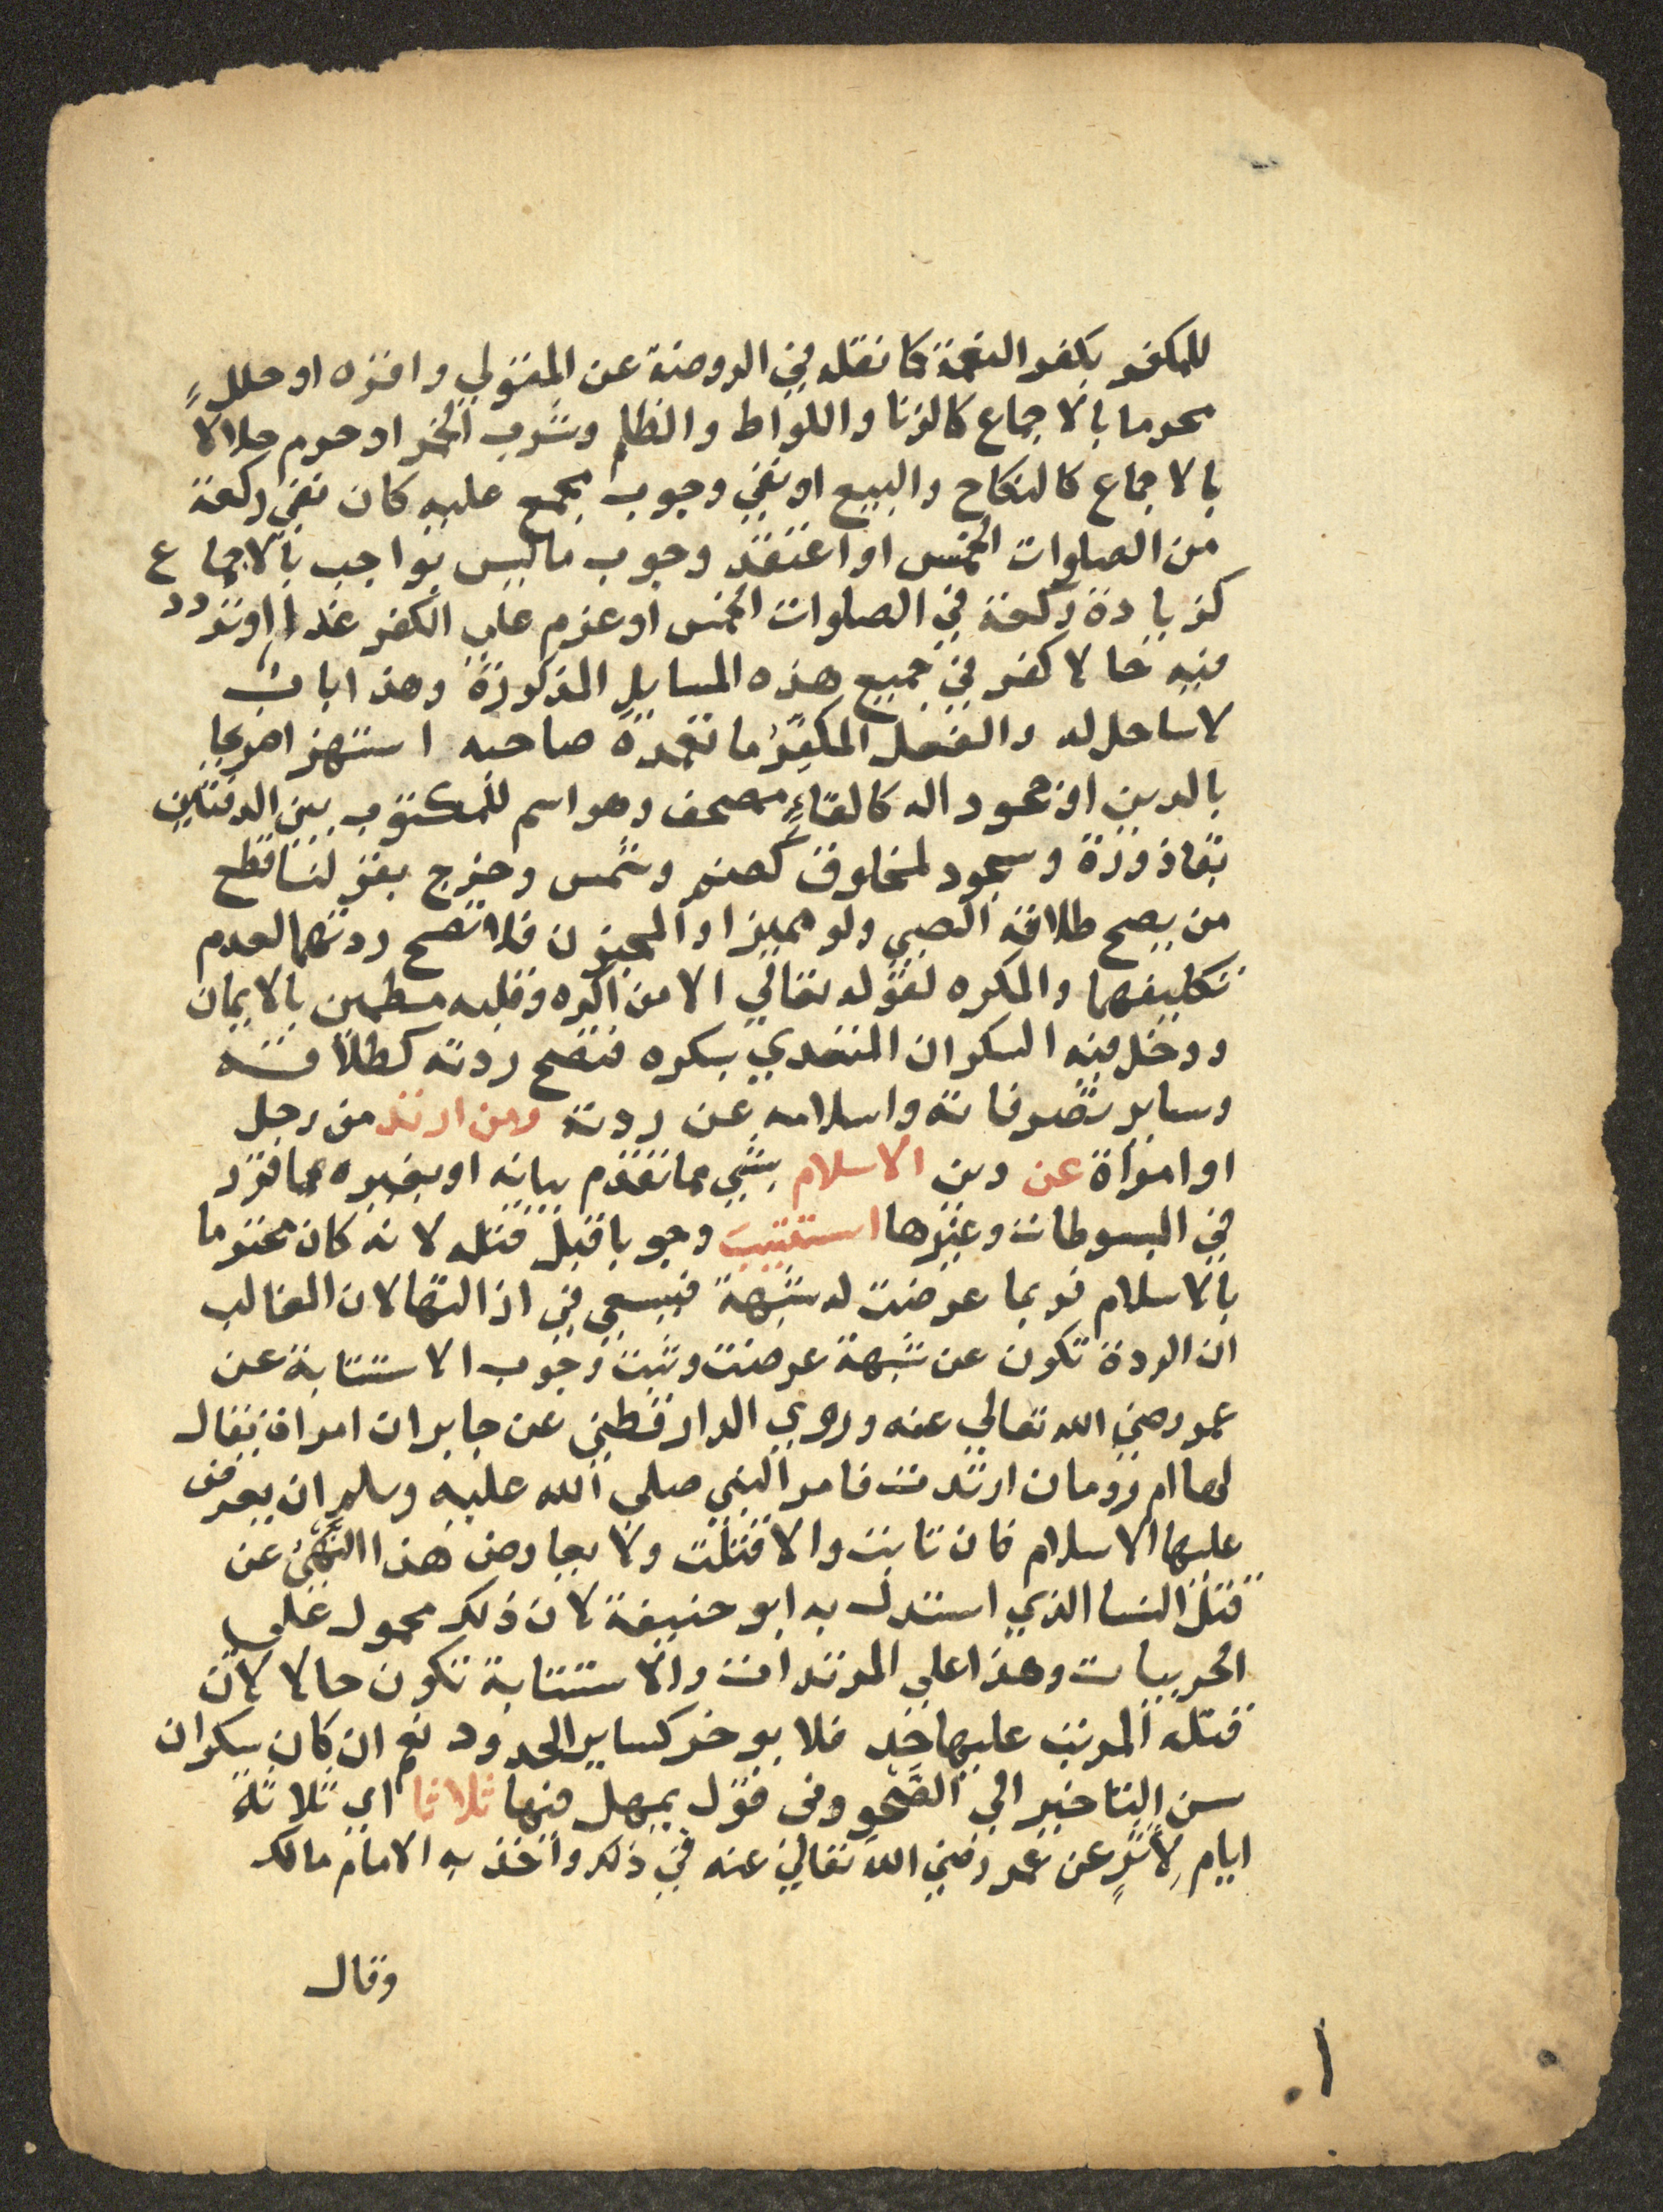 للمكفر بكفر النعمة كما نقله في الروضة عن المتولي واقره او حلل
محرما بالاجماع كالزنا واللواط والظلم وشرب الخمر او حرم حلالا
بالاجماع كالنكاح والبيع او نفي وجوب مجمع عليه كان نفي ركعة
من الصلوات الخمس او اعتقد وجوب ما ليس بواجب بالاجماع
كزيادة ركعة في الصلوات الخمس او عزم علي الكفر غدا او تردد
فيه حالا كفر في جميع هذه المسايل المذكورة وهذا باب
لا ساحل له والفعل المكفر ما تعمده صاحبه استهزا صريحا
بالدين او جحود اله كالقاء مصحف وهو اسم للمكتوب بين الدفتين
بقاذورة وسجود لمخلوق كصنم وشمس وخرج بقولنا قطع
من يصح طلاقه الصبي ولو مميزا والمجنون فلا تصح ردتهما لعدم
تكليفهما والمكره لقوله تعالي الا من اكره وقلبه مطمين بالايمان
ودخل فيه السكران المتعدي بسكره فتصح ردته كطلاقه
وساير تصرفاته واسلامه عن ردته ومن ارتد من رجل
او امراة عن دين الاسلام بشي مما تقدم بيانه او بغيره مما قرر
في المبسوطات وغيرها استتيب وجوبا قبل قتله لانه كان محترما
بالاسلام فربما عرضت له شبهة فيسعي في ازالتها لان الغالب
ان الردة تكون عن شبهة عرضت وثبت وجوب الاستتابة عن
عمر رضي الله تعالي عنه وروي الدارقطني عن جابر ان امراة يقال
لها ام رومان ارتدت فامر النبي صلي الله عليه وسلم ان يعرض
عليها الاسلام فان تابت والا قتلت ولا يعارض هذا النهي عن
قتل النسا الذي استدل به ابو حنيفة لان ذلك محمول علي
الحربيات وهذا علي المرتدات والاستتابة تكون حالا لان
قتله المرتب عليها حد فلا يوخر كساير الحدود نعم ان كان سكران
سن التاخير الي الصحو وفى قول يمهل فيها ثلاثا اي ثلاثة
ايام لاثر عن عمر رضي الله تعالي عنه في ذلك واخذ به الامام مالك
وقال
١